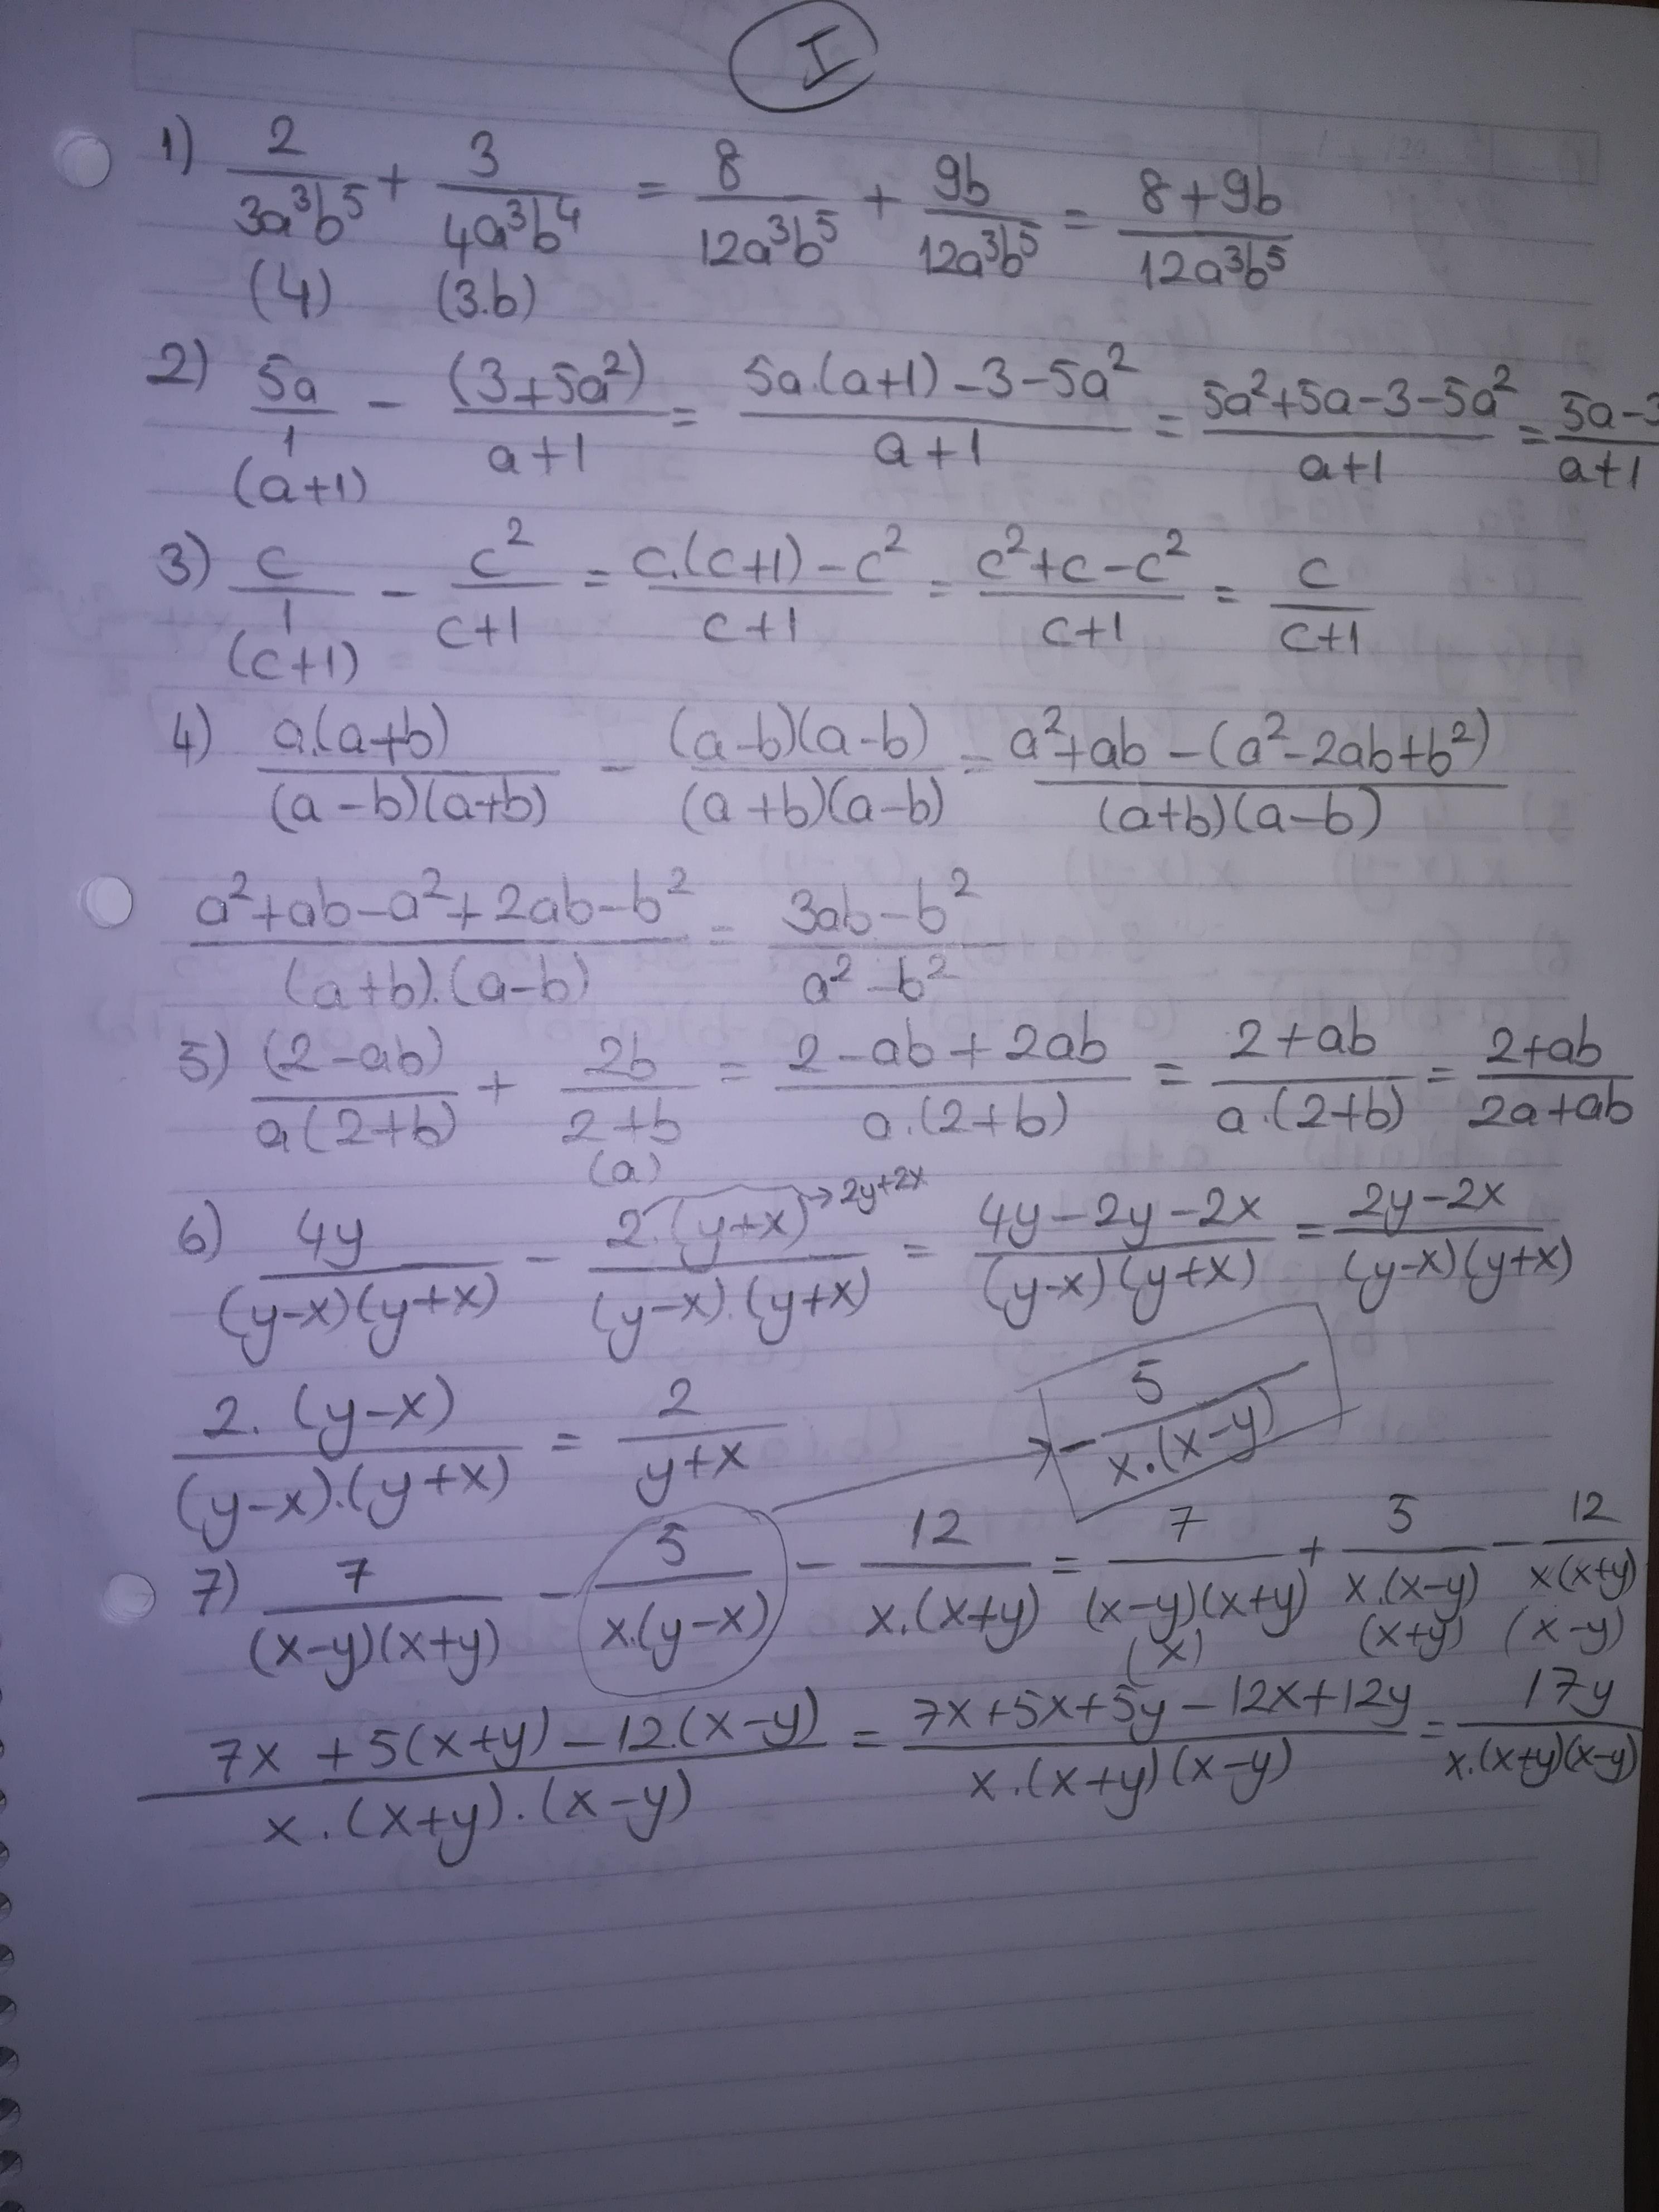 I
1) 2/(3a³b⁵) + 3/(4a³b⁴) = 8/(12a³b⁵) + 9b/(12a³b⁵) = (8+9b)/(12a³b⁵)
(4) (3.b)
2) 5a/1 - (3+5a²)/(a+1) = (5a.(a+1)-3-5a²)/(a+1) = (5a²+5a-3-5a²)/(a+1) = (5a-3)/(a+1)
(a+1)
3) c/1 - c²/(c+1) = (c.(c+1)-c²)/(c+1) = (c²+c-c²)/(c+1) = c/(c+1)
(c+1)
4) a.(a+b)/((a-b)(a+b)) - (a-b)(a-b)/((a+b)(a-b)) = (a²+ab-(a²-2ab+b²))/((a+b)(a-b))
(a²+ab-a²+2ab-b²)/((a+b).(a-b)) = (3ab-b²)/(a²-b²)
5) (2-ab)/(a(2+b)) + 2b/(2+b) = (2-ab+2ab)/(a.(2+b)) = (2+ab)/(a.(2+b)) = (2+ab)/(2a+ab)
(a)
6) 4y/((y-x)(y+x)) - 2.(y+x)/((y-x).(y+x)) → 2y+2x = (4y-2y-2x)/((y-x)(y+x)) = (2y-2x)/((y-x)(y+x))
2.(y-x)/((y-x).(y+x)) = 2/(y+x) → -5/(x.(x-y))
7) 7/((x-y)(x+y)) - 5/(x.(y-x)) - 12/(x.(x+y)) = 7/((x-y)(x+y)) + 5/(x.(x-y)) - 12/(x(x+y))
(x) (x+y) (x-y)
(7x+5(x+y)-12.(x-y))/(x.(x+y).(x-y)) = (7x+5x+5y-12x+12y)/(x.(x+y)(x-y)) = 17y/(x.(x+y)(x-y))